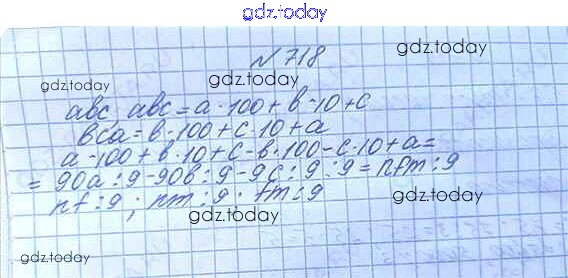 gdz.today
№ 718
gdz.today
gdz.today
gdz.today
abc, abc = a · 100 + b · 10 + c
bca = b · 100 + c · 10 + a
a · 100 + b · 10 + c - b · 100 - c · 10 + a =
= 90a : 9 - 90b : 9 - 9c : 9 : 9 = nfm : 9
nf : 9 ; nm : 9 ; fm : 9
gdz.today
gdz.today
gdz.today